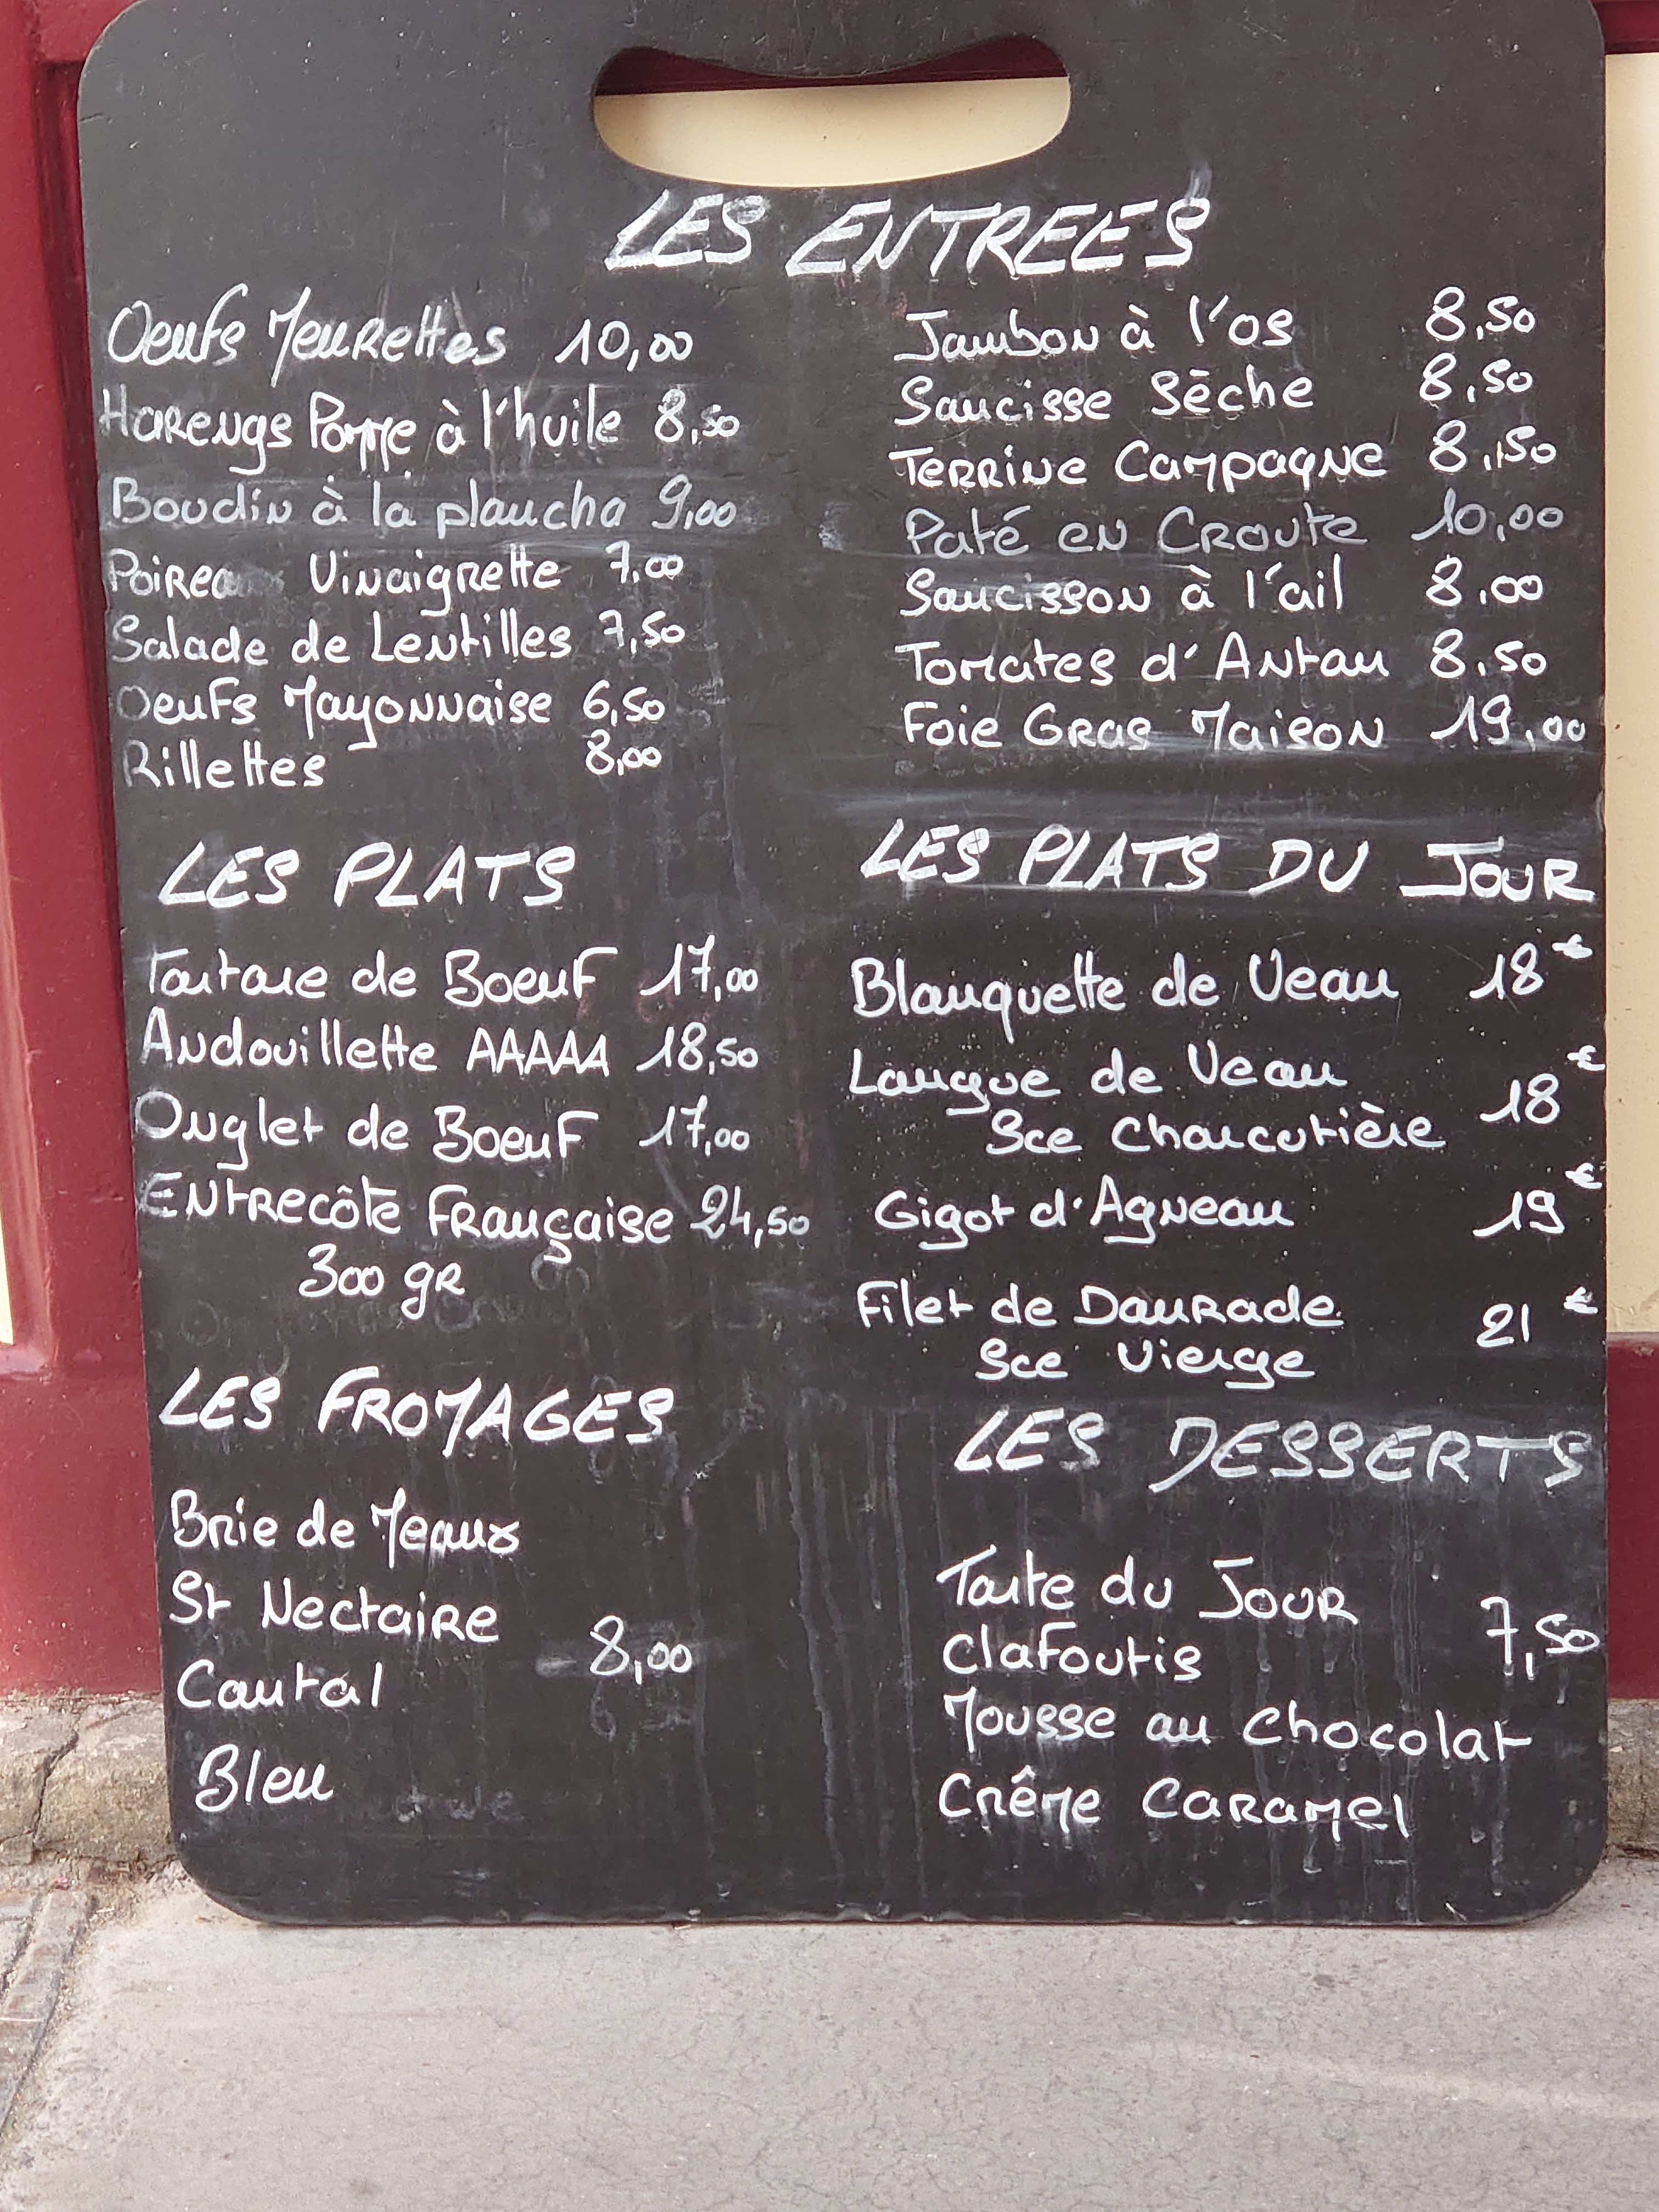 LES ENTREES
Oeufs Meurettes 10,00
Harengs Pomme à l'huile 8,50
Boudin à la plancha 9,00
Poireaux Vinaigrette 7,00
Salade de Lentilles 7,50
Oeufs Mayonnaise 6,50
Rillettes 8,00
Jambon à l'os 8,50
Saucisse Sèche 8,50
Terrine Campagne 8,50
Paté en Croute 10,00
Saucisson à l'ail 8,00
Tomates d'Antan 8,50
Foie Gras Maison 19,00
LES PLATS
Tartare de Boeuf 17,00
Andouillette AAAAA 18,50
Onglet de Boeuf 17,00
Entrecôte Française 24,50
300 gr
LES PLATS DU JOUR
Blanquette de Veau 18€
Langue de Veau
Sce Charcutière 18€
Gigot d'Agneau 19€
Filet de Daurade 21€
Sce Vierge
LES FROMAGES
Brie de Meaux
St Nectaire
8,00
Cantal
Bleu
LES DESSERTS
Tarte du Jour
7,50
Clafoutis
Mousse au Chocolat
Crême Caramel